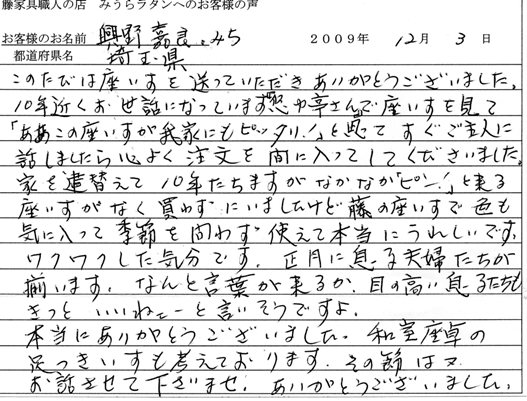 藤家具職人の店 みうらラタンへのお客様の声
お客様のお名前 興野 嘉良・みち
都道府県名 埼玉県
2009年 12月 3日
このたびは座いすを送っていただきありがとうございました。
10年近くお世話になっています 亭さんで座いすを見て
「ああこの座いすが我家にもピッタリ!」と思って すぐご主人に
話しましたら心よく 注文を間に入ってしてくださいました。
家を建替えて 10年たちますが なかなか「ピン!」と来る
座いすがなく買わずにいましたけど 藤の座いすで色も
気に入って 季節を問わず 使えて本当にうれしいです。
ワクワクした気分です。正月に息子夫婦たちが
揃います。なんと言葉が来るか、目の高い息子たちも
きっと いいねェーと言いそうですよ。
本当にありがとうございました。和室座卓の
足つきいすも考えております。その節は又
お話させて下さいませ。ありがとうございました。